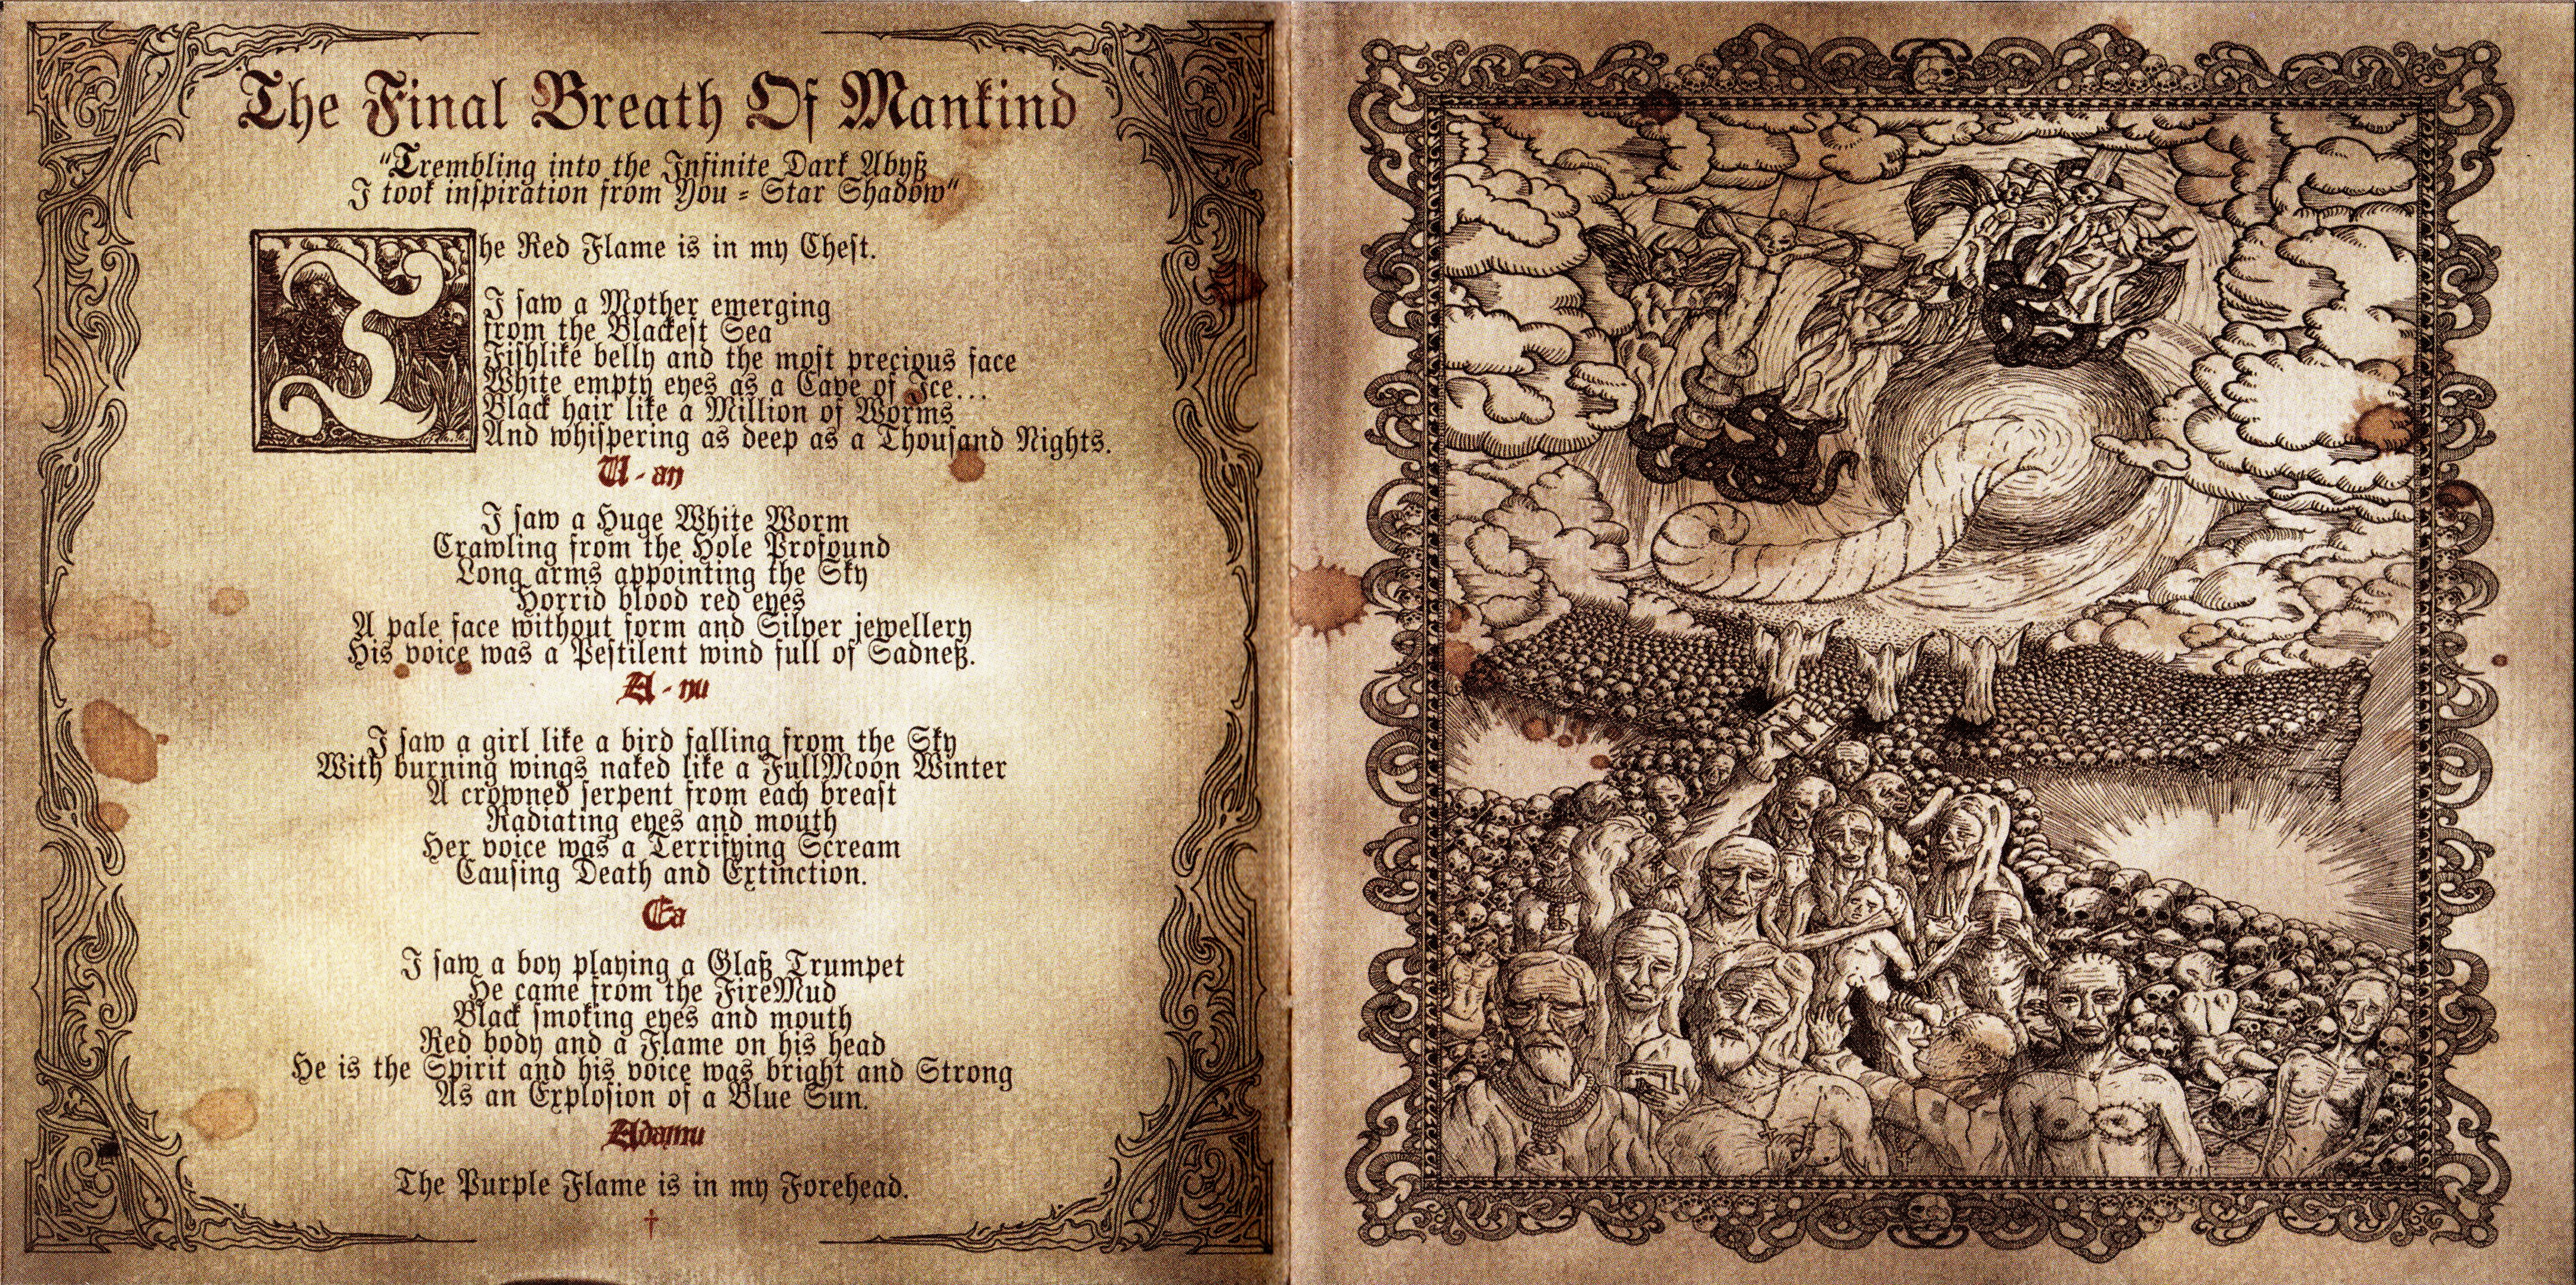 The Final Breath Of Mankind
"Trembling into the Infinite Dark Abyß
I took inſpiration from You - Star Shadow"
The Red Flame is in my Cheſt.
I ſaw a Mother emerging
from the Blackeſt Sea
Fiſhlike belly and the moſt precious face
White empty eyes as a Cave of Ice...
Black hair like a Million of Worms
And whiſpering as deep as a Thouſand Nights.
U - an
I ſaw a Huge White Worm
Crawling from the Hole Profound
Long arms appointing the Sky
Horrid blood red eyes
A pale face without form and Silver jewellery
His voice was a Peſtilent wind full of Sadneß.
A - nu
I ſaw a girl like a bird falling from the Sky
With burning wings naked like a FullMoon Winter
A crowned ſerpent from each breaſt
Radiating eyes and mouth
Her voice was a Terrifying Scream
Cauſing Death and Extinction.
Ea
I ſaw a boy playing a Glaß Trumpet
He came from the FireMud
Black ſmoking eyes and mouth
Red body and a Flame on his head
He is the Spirit and his voice was bright and Strong
As an Exploſion of a Blue Sun.
Adamu
The Purple Flame is in my Forehead.
†